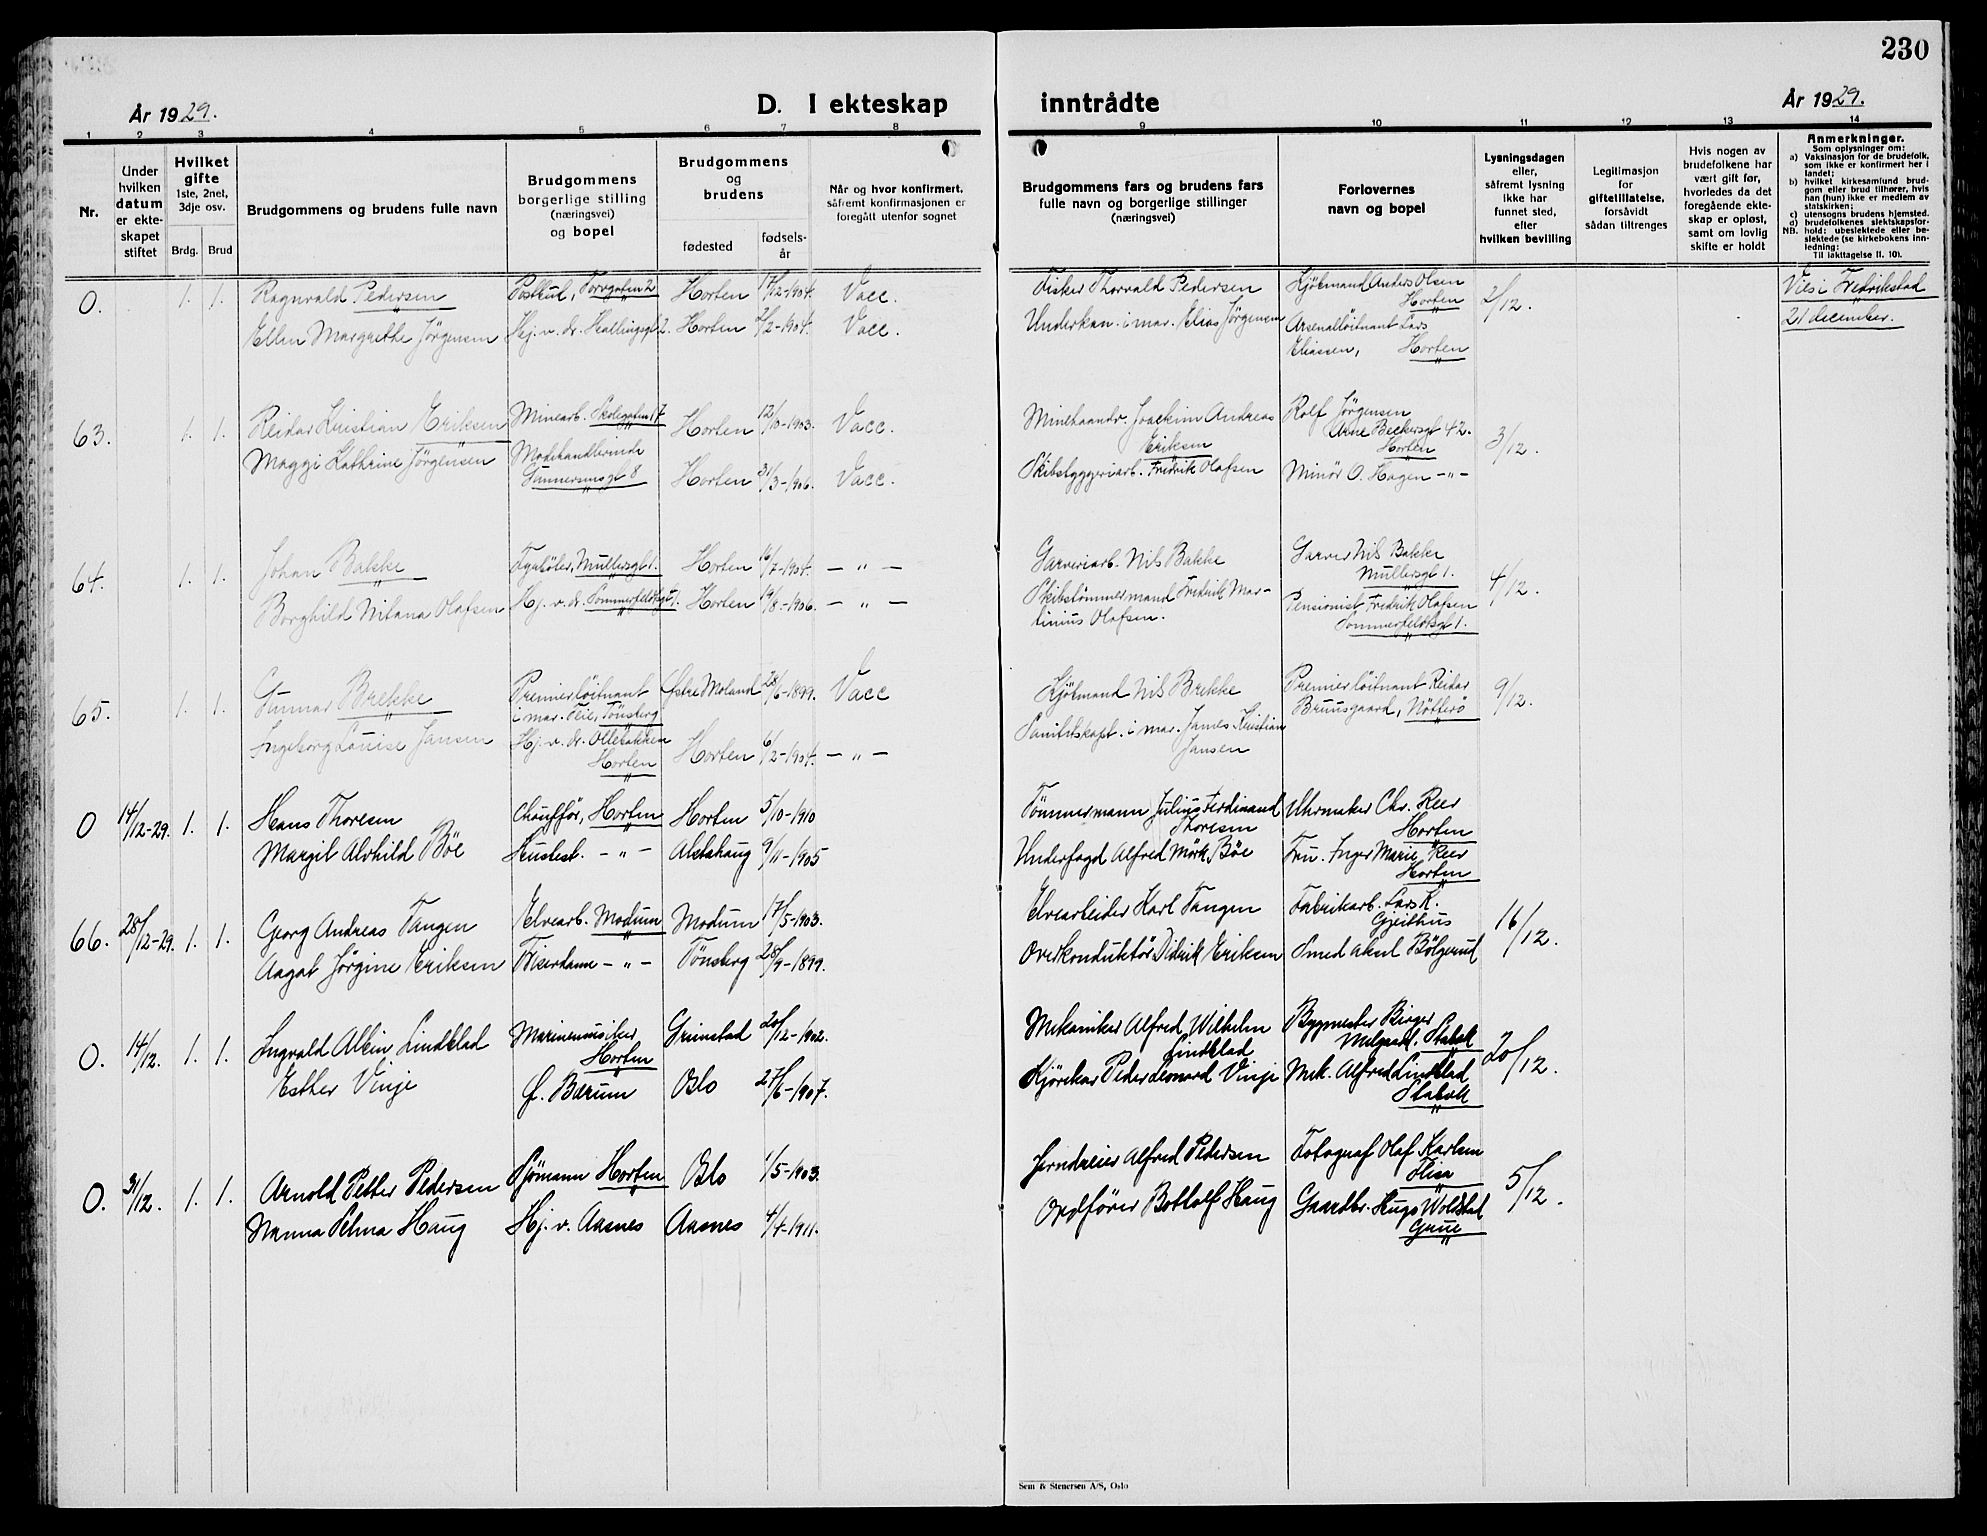 230
År 1929.
D. I ekteskap inntrådte
År 1929.
1 2 3 4 5 6 7 8 9 10 11 12 13 14
Nr.
Under
hvilken
datum
er ekte-
skapet
stiftet
Hvilket
gifte
1ste, 2net,
3dje osv.
Brdg. Brud
Brudgommens og brudens fulle navn
Brudgommens
borgerlige stilling
(næringsvei)
og bopel
Brudgommens
og
brudens
fødested
fødsels-
år
Når og hvor konfirmert,
såfremt konfirmasjonen er
foregått utenfor sognet
Brudgommens fars og brudens fars
fulle navn og borgerlige stillinger
(næringsvei)
Forlovernes
navn og bopel
Lysningsdagen
eller,
såfremt lysning
ikke har
funnet sted,
efter
hvilken bevilling
Legitimasjon
for
giftetillatelse,
forsåvidt
sådan tiltrenges
Hvis nogen av
brudefolkene har
vært gift før,
hvorledes da det
foregående ekte-
skap er opløst,
samt om lovlig
skifte er holdt
Anmerkninger.
Som oplysninger om:
a) Vaksinasjon for de brudefolk,
som ikke er konfirmert her i
landet;
b) hvilket kirkesamfund brud-
gom eller brud tilhører, hvis
han (hun) ikke er medlem av
statskirken;
c) utensogns brudens hjemsted.
d) brudefolkenes slektskapsfor-
NB. hold: ubeslektede eller be-
slektede (se kirkebokens inn-
ledning:
Til iakttagelse II. 10).
0. 1. 1. Ragnvald Pedersen Postbud, Torvgaten 2 Horten 17/12-1904. Vacc. Fisker Thorvald Pedersen Kjöbmand Anders Olsen Horten 2/12. Vies i Fredrikstad
Ellen Margrethe Jörgensen Hj. v. dr. 2. Horten 2/2-1904. Vacc. Underkan. i mar. Elias Jörgensen Arsenalløitnant Lars Eliassen, Horten 21 december.
63. 1. 1. Reidar Kristian Eriksen Minearb. Skolegaten 17 Horten 12/10-1903. Vacc. Minehaandv. Joackim Andreas Eriksen Rolf Jørgensen Arne Beckersgt 42. Horten 3/12.
Maggi Kathrine Jörgensen Modehandlerinde Gunnersensgt 8 Horten 31/3-1906. Vacc. Skibsbyggeriarb. Fredrik Olafsen Minör O. Hagen -"-
64. 1. 1. Johan Bakke Fyrböter, Mullersgt 1. Horten 16/7-1904. -"- Garveriarb. Nils Bakke Garver Nils Bakke Mullersgt 1. 4/12.
Borghild Nitana Olafsen Hj. v. dr. Sommerfeldtsgt 1. Horten 19/8-1906. -"- Skibstömmermand Fredrik Mar-
tinius Olafsen. Pensionist Fredrik Olafsen Sommerfeldtsgt 1.
65. 1. 1. Gunnar Brekke Premierlöitnant i mar. Teie, Tönsberg Östre Moland 28/6-1899. Vacc Kjöbmand Nils Brekke Premierlöitnant Reidar Bruusgaard, Nötterö 9/12.
Ingeborg Louise Jansen Hj. v. dr. Ollebakken Horten Horten 6/2-1904. -"- Sanitetskapt. i mar. James Kristian Jansen
0 14/12-29. 1. 1. Hans Thoresen Chauffør, Horten Horten 5/10-1910 Tömmermann Julius Ferdinand Thoresen Uhrmaker Chr. Reer Horten
Margit Alvhild Böe -"- Alstahaug 9/11-1905 Underfogd Alfred Mörk Böe Fru. Inger Marie Reer Horten
66. 28/12-29. 1. 1. Georg Andreas Tangen Elvearb. Modum Modum 17/5-1903. Elvearbeider Karl Tangen Fabrikarb. Lars K. Gjeithus 16/12.
Aagot Jörgine Eriksen Friserdame -"- Tönsberg 28/9-1899. Overkonduktör Didrik Eriksen Smed Aksel Bölgerud
0. 14/12. 1. 1. Ingvald Albin Lindblad Marinemusiker Horten Grimstad 20/12-1902. Mekaniker Alfred Wilhelm Lindblad Bygmester Birger Melgaard. Stabek 20/12.
Esther Vinje f. Bærum Oslo 27/6-1907. Kjörekar Peder Leonard Vinje Mek. Alfred Lindblad Stabek
0. 31/12. 1. 1. Arnold Petter Pedersen Sjömann Horten Oslo 1/5-1903. Jerndreier Alfred Pedersen Fotograf Olaf Karlsen Flisa 5/12.
Nanna Selma Haug Hj. v. Aasnes Aasnes 4/4-1911. Ordförer Botolf Haug Gaardbr. Hugo Woldstad Grue
Sem & Stenersen A/S, Oslo